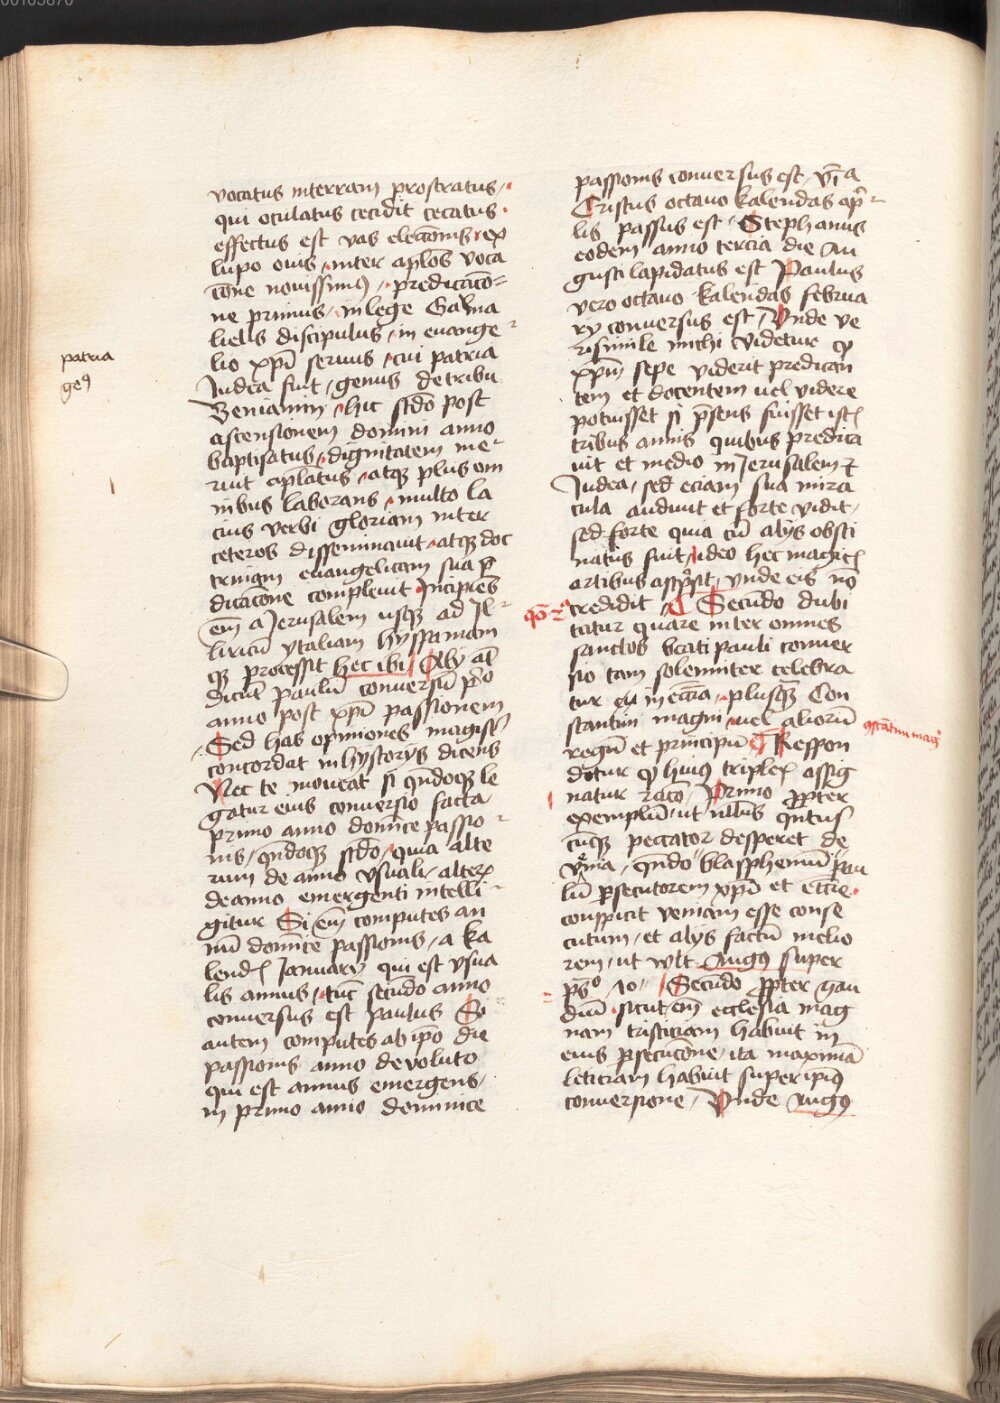 vocatus interram prostratus
qui oculatus cecidit cecatus
effectus est vas eleccōnis ex
lupo ouis inter aplōs voca
cōne nouissim9 predicacō=
ne primus in lege Gama
lielis discipulus in euange
lio xpī seruus cui patria
Judea fuit genus de tribu
Beniamin hic scdō post
ascensionem domini anno
baptisatus dignitatem me
ruit aplatus atqꝫ plus om
nibus laborans multo la
cius verbi gloriam inter
ceteros disseminauit atqꝫ doc
trinam euangelicam sua p̄
dicacōne compleuit Incipiens
em̄ a Jerusalem usqꝫ ad Jl
liricū ytaliam hyspaniam
qꝫ processit hec ibi Alij at̄
dicūt paulū conuersū pͦo
anno post xpī passionem
Sed has opiniones magist
concordat in hystorijs dicens
Nec te moueat si qn̄doqꝫ le
gatur eius conuersio facta
primo anno domīce passio
nis qn̄doqꝫ scdō quia alte
rum de anno vsuali alterꝫ
de anno emergenti intelli
gitur Si em̄ computes an
nū domīce passionis a ka
lend Januarij qui est vsua
lis annus tūc secūdo anno
conuersus est paulus Si
autem computes ab ipō die
passionis anno deuoluto
qui est annus emergens
in primo anno dominice
patria
ge9
passionis conuersus est
Cristus octauo kalendas apͥ
lis passus est Stephanus
eodem anno tercia die Au
gusti lapidatus est Paulus
vero octauo kalendas februa
rij conuersus est Vnde ve
risimile michi videtur qꝫ
xpm̄ sepe viderit predican
tem et docentem uel videre
potuisset si p̄sens fuisset ist
tribus annis quibus predica
uit et medio in Jerusalem ⁊
Judea sed eciam sua mira
cula audiuit et forte vidit
sed forte quia cū alijs obsti
natus fuit ideo hec magic
artibus ascpͥsit vnde eis nō
credidit Secūdo dubi
tatur quare inter omnes
sanctos beati pauli conuer
sio tam solenniter celebra
tur in ecc̄ia plusqꝫ Con
stantini magni uel aliorū
regū et principū Respon
detur qꝫ hui9 triplex assig
natur racō Primo ꝓpter
exemplū ut null9 qn̄tus
cūqꝫ peccator desperet de
venia qn̄do blasphemū pau
lū ꝑsecutorem xpī et ecc̄ie
conspicit veniam esse conse
cutum et alijs factū melio
rem ut wlt Augꝰ super
ps̄o 10 Secūdo ꝓpter gau
diū sicut em̄ ecclesia mag
nam tristiciam habuit in
eius ꝑsecucōne ita maximā
leticiam habuit super ipiꝰ
conuersione Vnde Augꝰ